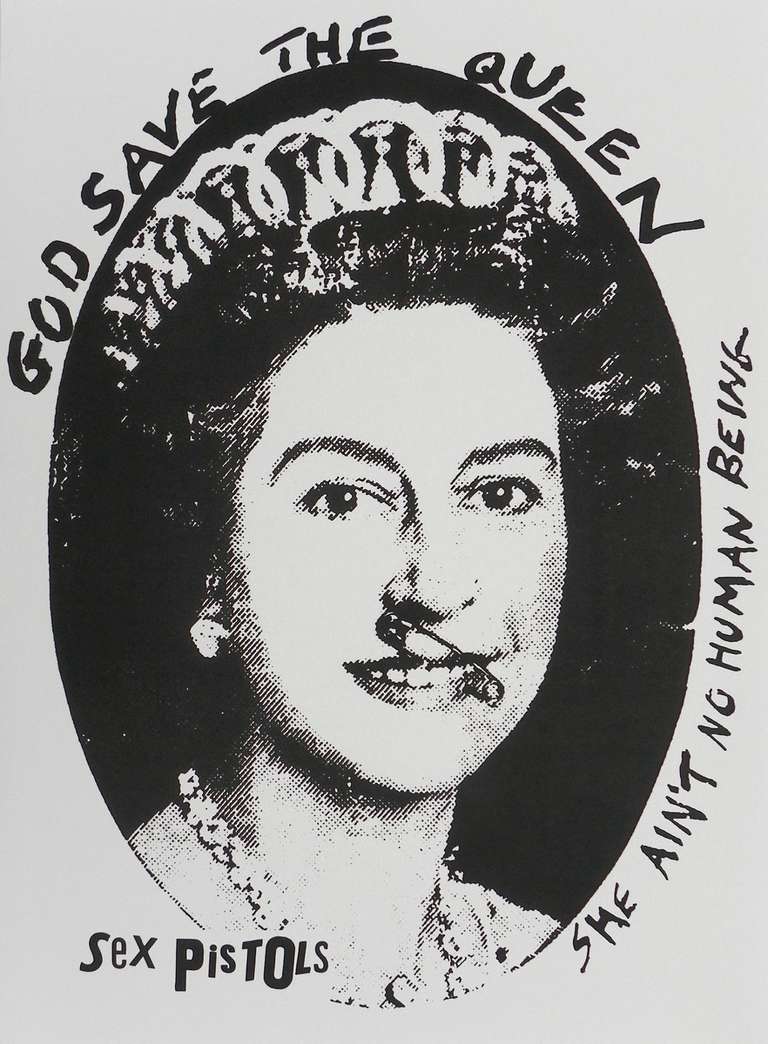 GOD SAVE THE QUEEN
SHE AIN'T NO HUMAN BEING
SeX PiSTOLs